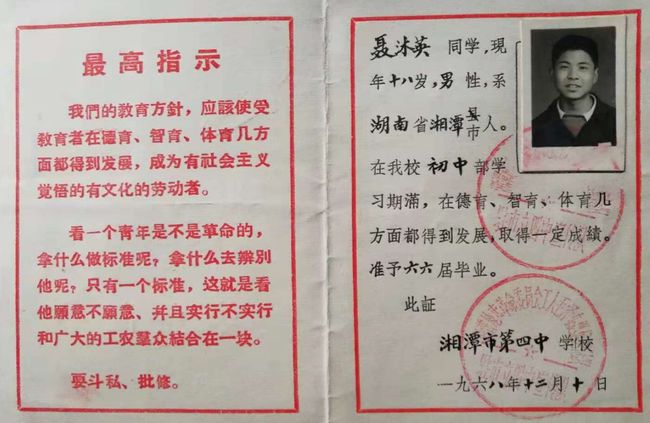 最高指示
我們的教育方針，应該使受
教育者在德育、智育、体育几方
面都得到发展，成为有社会主义
觉悟的有文化的劳动者。
看一个青年是不是革命的，
拿什么做标准呢？拿什么去辨別
他呢？只有一个标准，这就是看
他願意不願意、幷且实行不实行
和广大的工农羣众結合在一块。
要斗私、批修。
聂沐英 同学，現
年十八岁，男 性，系
湖南省湘潭县市人。
在我校 初中 部学
习期滿，在德育、智育、体育几
方面都得到发展，取得一定成績。
准予六六届毕业。
此証
湘潭市第四中 学校
一九六八年十二月十日